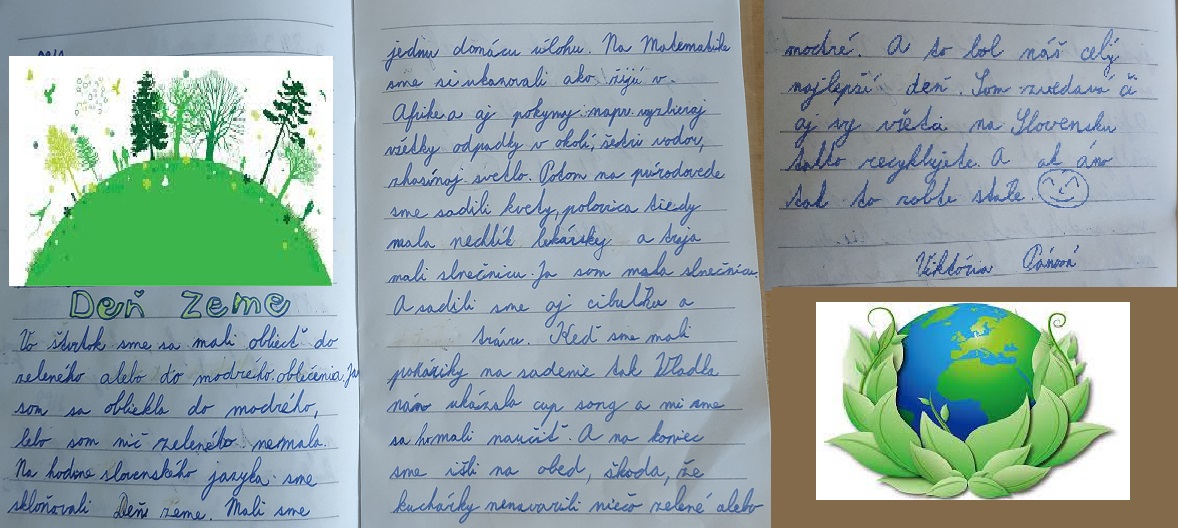 Deň Zeme
Vo štvrtok sme sa mali obliecť do
zeleného alebo do modrého oblečenia. Ja
som sa obliekla do modrého,
lebo som nič zeleného nemala.
Na hodine slovenského jazyka sme
skloňovali Deň zeme. Mali sme
jednu domácu úlohu. Na Matematike
sme si ukazovali ako žijú v
Afrike a aj pokyny napr. vyzbieraj
všetky odpadky v okolí, šetri vodou,
zhasínaj svetlo. Potom na prírodovede
sme sadili kvety, polovica triedy
mala nechtík lekársky a traja
mali slnečnicu. Ja som mala slnečnicu.
A sadili sme aj cibuľku a
trávu. Keď sme mali
poháriky na sadenie tak Vladka
nám ukázala cup song a mi sme
sa ho mali naučiť. A na koniec
sme išli na obed, škoda, že
kuchárky nenavarili niečo zelené alebo
modré. A to bol náš celý
najlepší deň. Som zvedavá či
aj vy všetci na Slovensku
takto recyklujete. A ak áno
tak to robte stále.
Viktória